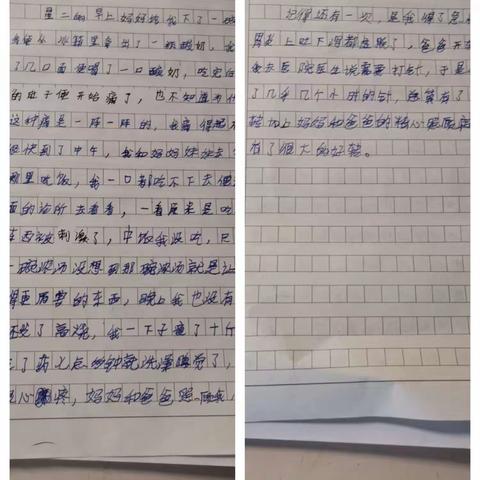 星二的早上妈妈给我下了一碗
从冰箱里拿出了一瓶酸奶，我
了几口面便喝了一口酸奶，吃完
的肚子便开始痛了，也不知道为什
这种痛是一阵一阵的，我痛得起不
快到了中午，我和妈妈妹妹去
那里吃饭，我一口都吃不下去便
面的诊所去看看，一看原来是吃
东西被刺激了，中饭我没吃，只
一碗浓汤没想到那碗浓汤就是让
得更厉害的东西，晚上我也没有
还发了高烧，我一下子瘦了十斤
了药七点钟就洗澡睡觉了，
心疼，妈妈和爸爸照顾我
记得还有一次，是我得了急
胃炎上吐下泻都虚脱了，爸爸开
我去医院医生说需要打针，于是
了几乎几个小时的针，总算有了
转加上妈妈和爸爸的精心照顾
有了很大的好转。